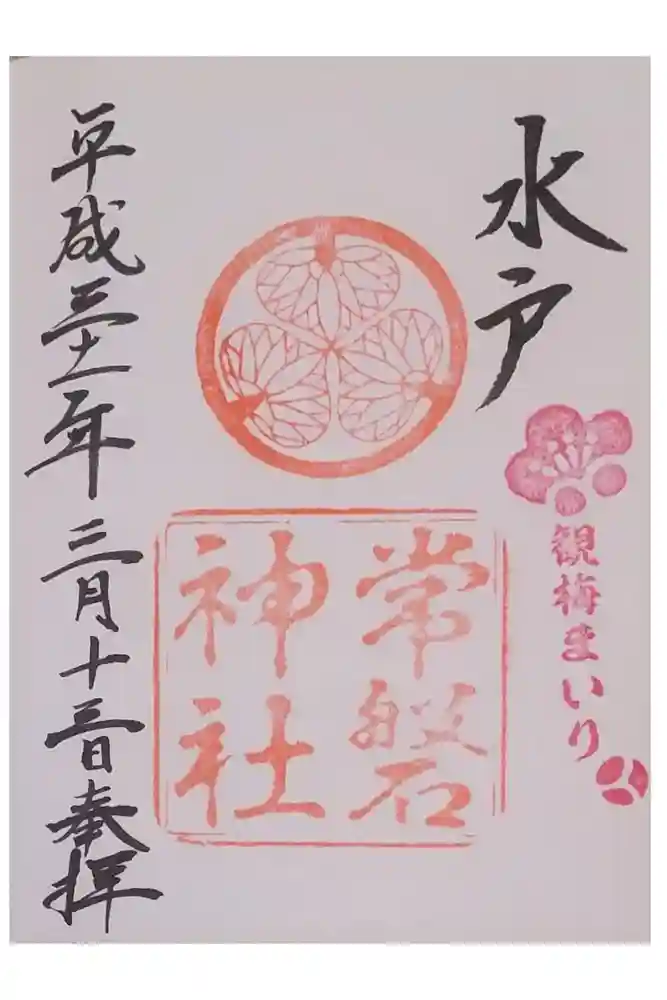 水戸
観梅まいり
常磐
神社
平成三十一年三月十三日奉拝